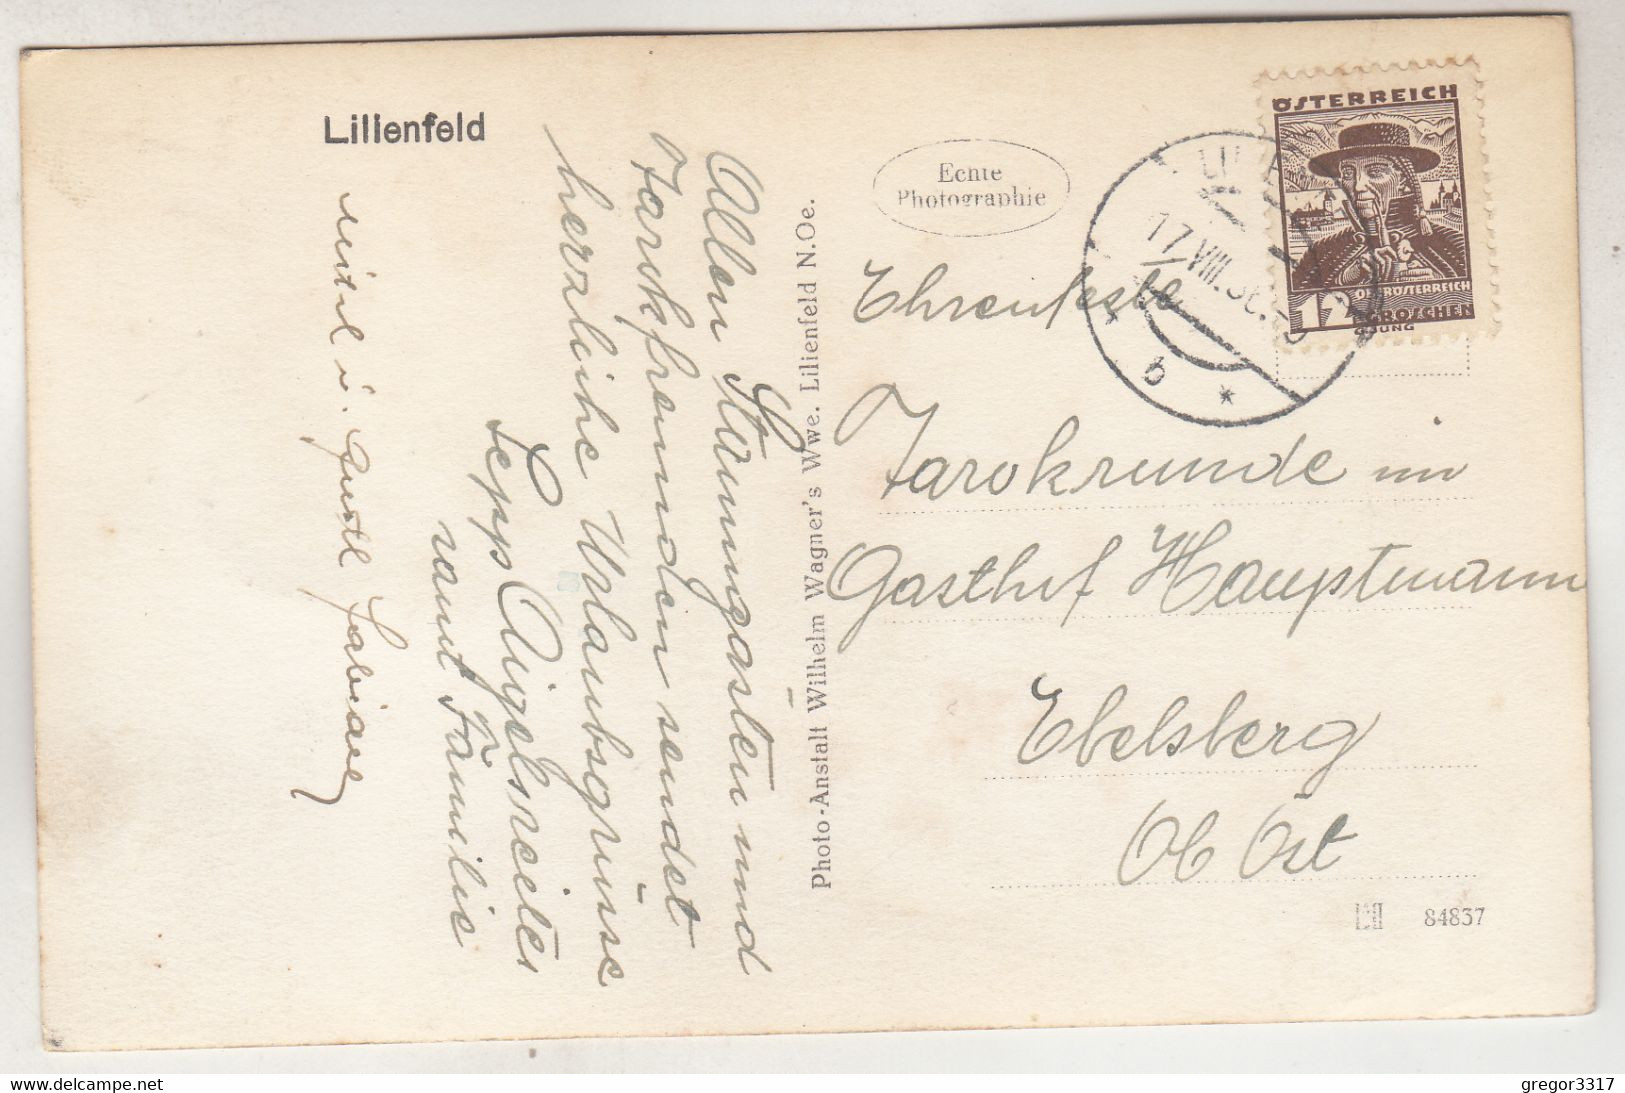 Lilienfeld
Allen Stammgästen und
Tarokfreunden sendet
herzliche Urlaubsgrüsse
Sepp
samt Familie
Photo-Anstalt Wilhelm Wagner's Wwe. Lilienfeld N.Oe.
Echte
Photographie
ÖSTERREICH
OBERÖSTERREICH
12 GROSCHEN
17.VIII.36
b
Ehrenfeste
Tarokrunde im
Gasthof Hauptmann
Ebelsberg
Ob Öst
84837
delcampe.net
gregor3317